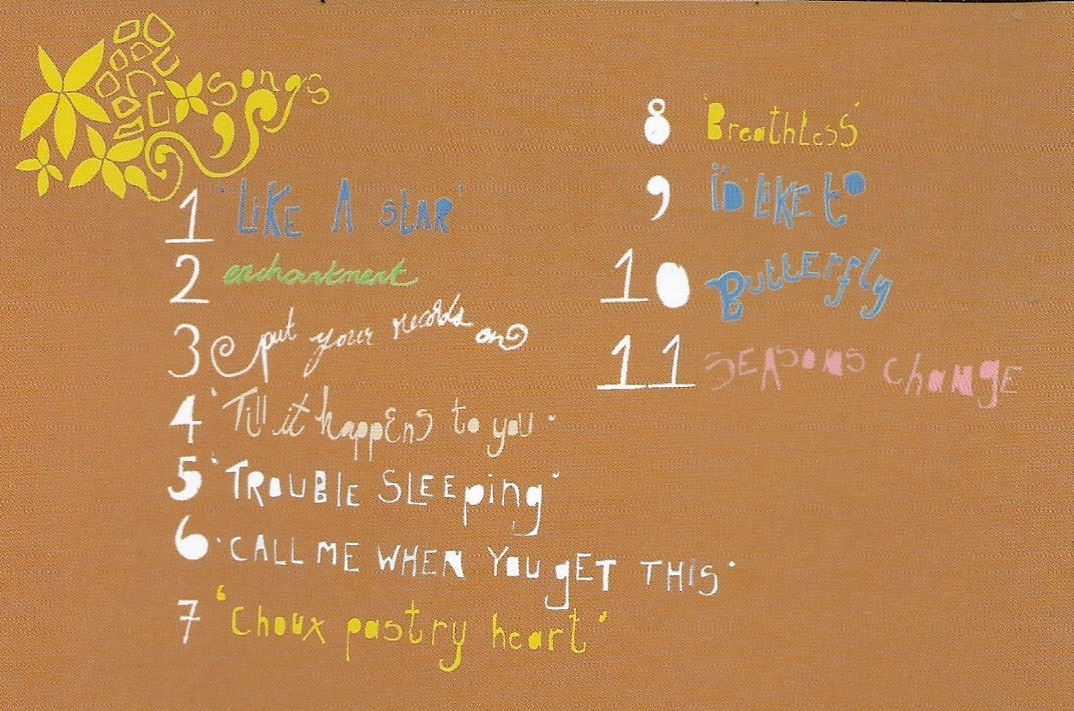 songs
1 'LIKE A STAR'
2 enchantment
3 put your records on
4 'Till it happens to you'
5 'TROUBLE SLEEping'
6 'CALL ME WHEN YOU gET THIS'
7 'Choux pastry heart'
8 'Breathless'
9 I'D LIKE to
10 ButtErfly
11 SEASONS ChANGE